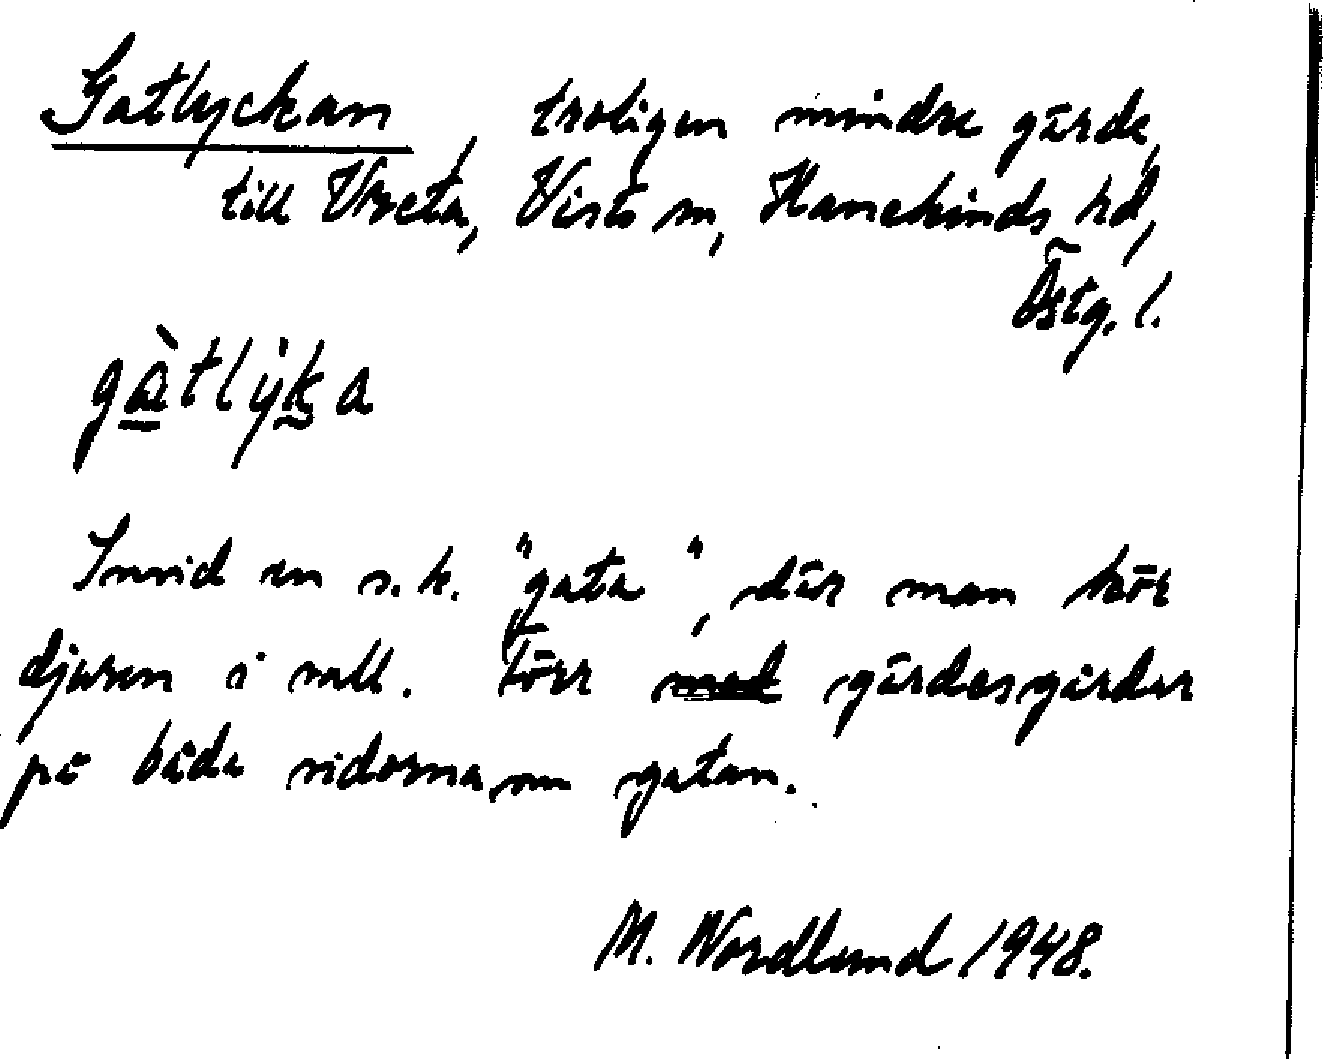 Gatlyckan, troligen mindre gärde,
till Vreta, Vists sn, Hanekinds hd,
Östg. l.
gàtlyka
Invid en s.k. "gata", där man kör
djuren i vall. Förr gärdesgårdar
på båda sidorna om gatan.
M. Nordlund 1948.